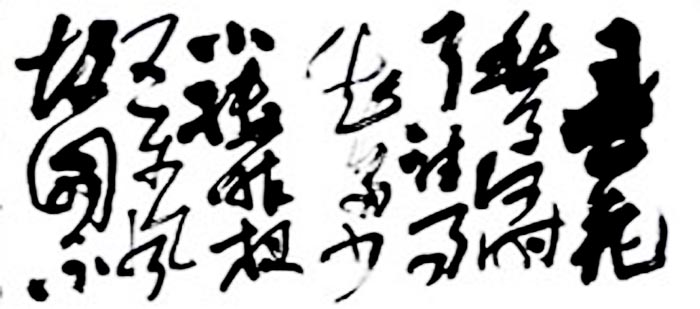 春花
秋月何时
了往事
知多少
小楼昨夜
又东风
故国不